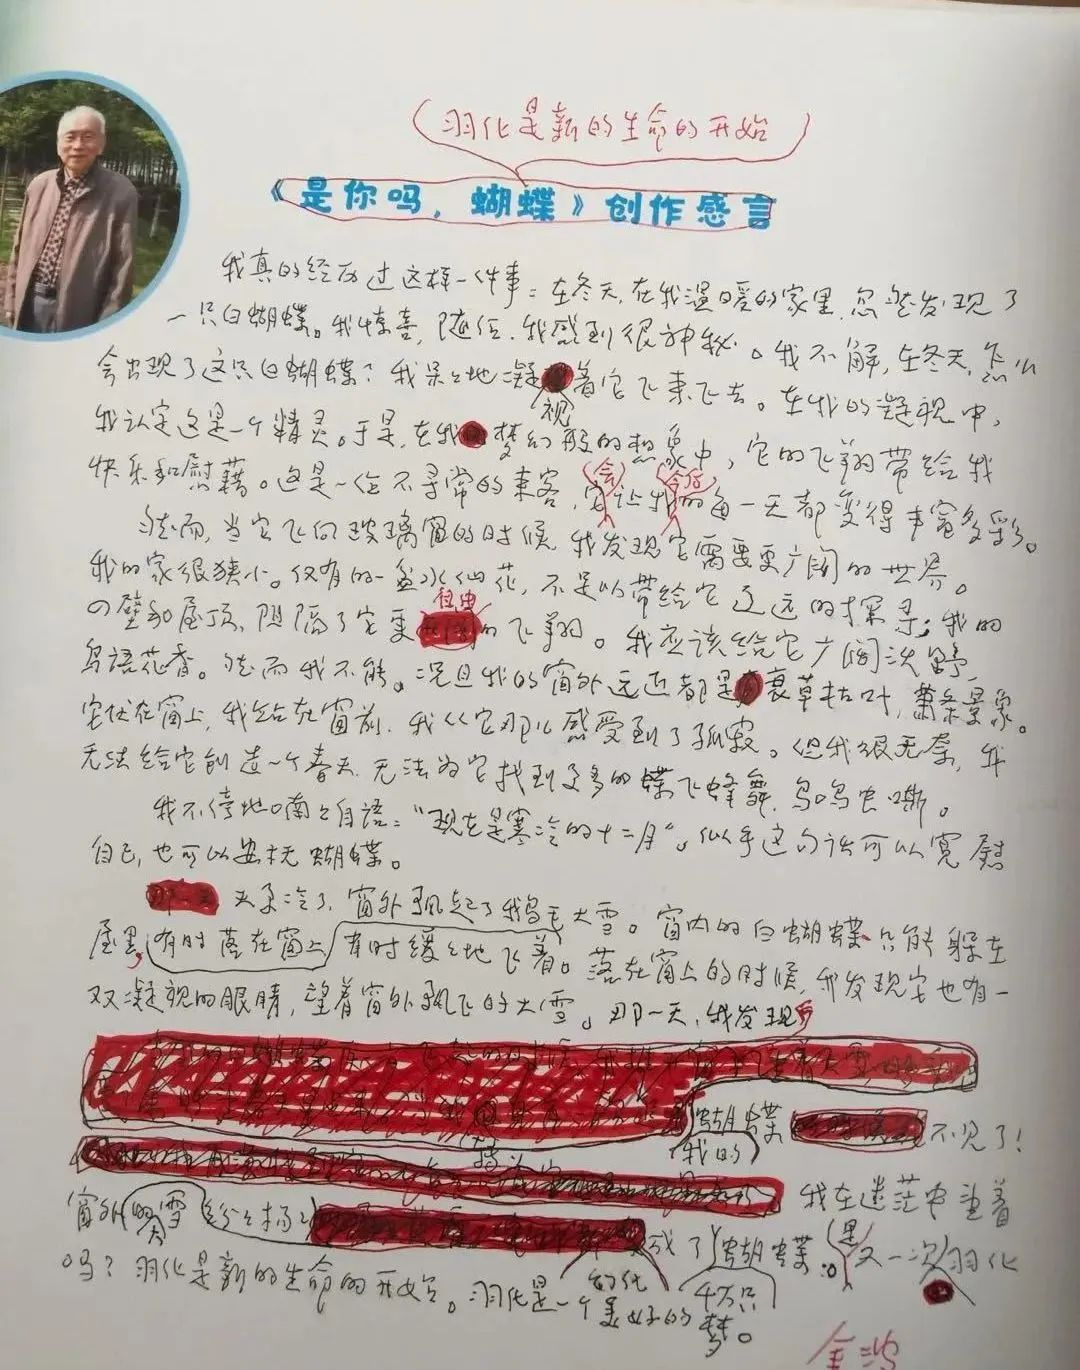 羽化是新的生命的开始
《是你吗，蝴蝶》创作感言
我真的经历过这样一件事：在冬天，在我温暖的家里，忽然发现了
一只白蝴蝶。我惊喜，随后，我感到很神秘。我不解，在冬天，怎么
会出现了这只白蝴蝶？我呆呆地凝视着它飞来飞去。在我的凝视中，
我认定这是一个精灵。于是，在我梦幻般的想象中，它的飞翔带给我
快乐和慰藉。这是一位不寻常的来客，它会让我今后的每一天都变得丰富多彩。
然而，当它飞向玻璃窗的时候，我发现它需要更广阔的世界。
我的家很狭小。仅有的一盆水仙花，不足以带给它辽远的探寻；我的
四壁和屋顶，阻隔了它更自由的飞翔。我应该给它广阔沃野，
鸟语花香。然而我不能。况且我的窗外远近都是衰草枯叶，萧条景象。
它伏在窗上，我站在窗前，我从它那儿感受到了孤寂。但我很无奈，我
无法给它创造一个春天，无法为它找到更多的蝶飞蜂舞，鸟鸣虫嘶。
我不停地喃喃自语：“现在是寒冷的十二月”。似乎这句话可以宽慰
自己，也可以安抚蝴蝶。
天更冷了，窗外飘起了鹅毛大雪。窗内的白蝴蝶只能躲在
屋里，有时落在窗上，有时缓缓地飞着。落在窗上的时候，我发现它也有一
双凝视的眼睛，望着窗外飘飞的大雪。那一天，我发现，
我的蝴蝶不见了！
我在迷茫中望着
窗外的大雪纷纷扬扬
幻化成了千万只蝴蝶。是又一次羽化
吗？羽化是新的生命的开始。羽化是一个美好的梦。
金波